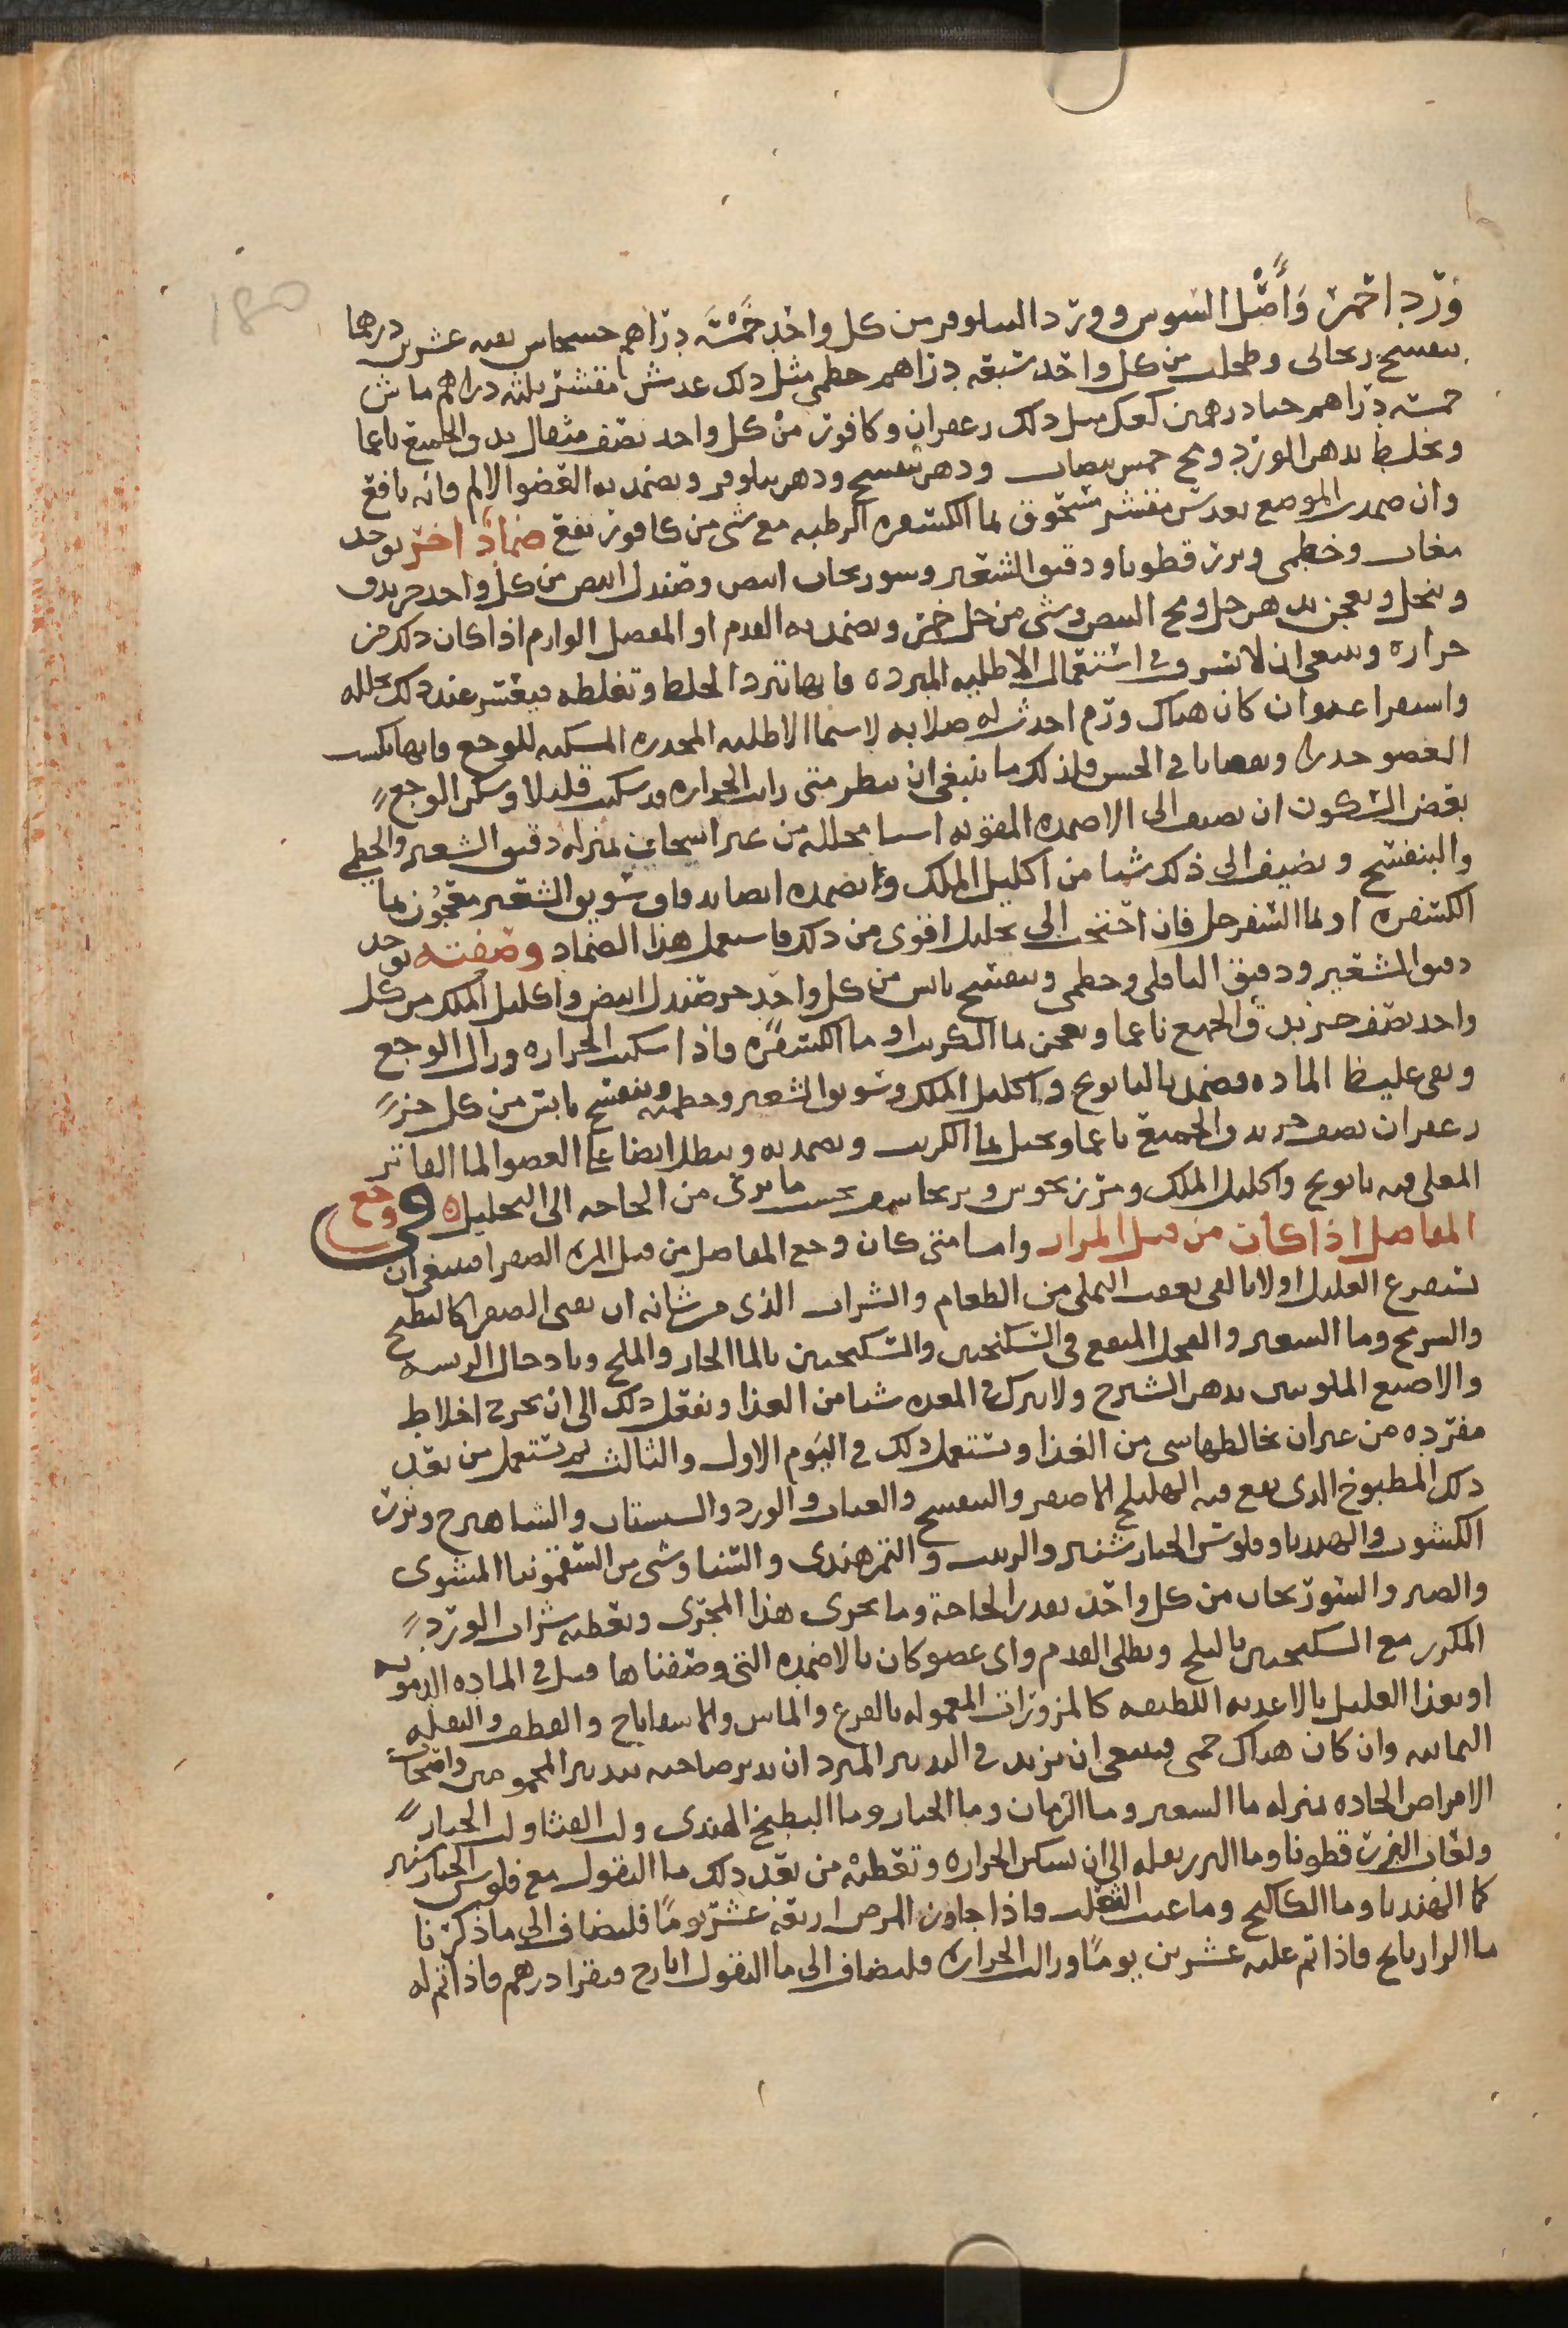 ورد احمر واصل السوس وورد السلوفر من كل واحد خمسه دراهم حسحاس بعيه عشرين درهما
بنفسج رىحانى وطحلب من كل واحد سبعه دراهم خطمى مثل ذلك عدس مقشر ثلثه دراهم ماش
خمسه دراهم حنا درهمين كعك مثل ذلك زعفران وكافور من كل واحد نصف مثقال يدق الجميع ناعما
ويخلط بدهن الورد ومح خمس بيضات ودهن بنفسج ودهن نيلوفر ويضمد به العضو الالم فانه نافع
وان ضمدت الموضع بعدس مقشر مسحوق بما الكسفره الرطبه مع شى من كافور نفع ضماد اخر يوخذ
مغاث وخطمى وبزر قطونا ودقيق الشعير وسورنجان ابيض وصندل ابيض من كل واحد جز يدق
وينخل ويعجن بدهن حل ومح البيض وشى من خل خمر ويضمد به القدم او المفصل الوارم اذا كان ذلك من
حراره وينبغى ان لا تسرف فى استعمال الاطليه المبرده فانها تبرد الخلط وتغلظه فيعسر عند ذلك تحلله
واستفراغه وان كان هناك ورم احدث له صلابه لا سيما الاطليه المخدره المسكنه للوجع فانها تكسب
العضو خدرا ونقصانا فى الحس فلذلك ما ينبغى ان ينظر متى رايت الحراره قد سكنت قليلا وسكن الوجع
بعض السكون ان تضيف الى الاضمده المقويه اشيا محلله من غير اسخان بمنزله دقيق الشعير والخطمى
والبنفسج ويضيف الى ذلك شيا من اكليل الملك وتضمده ايضا بدقاق سويق الشعير معجون بما
الكسفره او بما السفرجل فان احتجت الى تحليل اقوى من ذلك فاستعمل هذا الضماد وصفته يوخذ
دقيق الشعير ودقيق الباقلى وخطمى وبنفسج يابس من كل واحد جز صندل ابيض واكليل الملك من كل
واحد نصف جز يدق الجميع ناعما ويعجن بما الكرنب او ما الكسفره فاذا سكنت الحراره وزال الوجع
وبقى غليظ الماده فضمد بالبابونج واكليل الملك وسويق الشعير وخطميه وبنفسج يابس من كل جز
زعفران نصف جز يدق الجميع ناعما ويجبل بما الكرنب ويضمد به وينطل ايضا على العضو الما الفاتر
المغلى فيه بابونج واكليل الملك ومرزنجوش وبرنجاسف بحسب ما ترى من الحاجه الى التحليل ٥ فى وجع
المفاصل اذا كان من قبل المرار واما متى كان وجع المفاصل من قبل المره الصفرا فينبغى ان
تستفرغ العليل اولا بالقى بعقب التملى من الطعام والشراب الذى من شانه ان يقى الصفرا كالبطيخ
والسرمج وما الشعير والفجل المنقع فى السكنجبين والسكنجبين بالما الحار والملح وبادخال الريشه
والاصبع الملوثين بدهن الشيرج ولا يترك فى المعده شيا من الغذا ويفعل ذلك الى ان يخرج اخلاط
مفرده من غير ان يخالطها شى من الغذا وتستعمل ذلك فى اليوم الاول والثالث ثم تستعمل من بعد
ذلك المطبوخ الذى يقع فيه الهليلج الاصفر والبنفسج والعناب والورد والسبستان والشاهترج وبزر
الكشوث والهندبا وفلوس الخيار شنبر والزبيب والتمر هندى والسنا وشى من السقمونيا المشوى
والصبر والسورنجان من كل واحد بقدر الحاجة وما يجرى هذا المجرى وتعطيه شراب الورد
المكرر مع السكنجبين بالثلج ويطلى القدم واى عضو كان بالاضمده التى وصفناها قبل فى الماده الدمويه
او يغذا العليل بالاغذيه اللطيفه كالمزورات المعموله بالقرع والماش والاسفاناخ والقطف والبقله
اليمانيه وان كان هناك حمى فينبغى ان تزيد فى التدبير المبرد ان يدبر صاحبه بتدبير المحمومين واصحاب
الامراض الحاده بمنزله ما الشعير وما الرمان وما الخيار وما البطيخ الهندى ولب القثا ولب الخيار
ولعاب البزر قطونا وما البزر بقله الى ان تسكن الحراره وتعطيه من بعد ذلك ما البقول مع فلوس الخيارشنبر
كما الهندبا وما الكاكنج وما عنب الثعلب فاذا جاوز المرض اربعه عشر يوما فليضاف الى ما ذكرنا
ما الرازيانج فاذا تم عليه عشرين يوما وزالت الحراره فليضاف الى ما البقول ايارج فيقرا درهم فاذا تم له